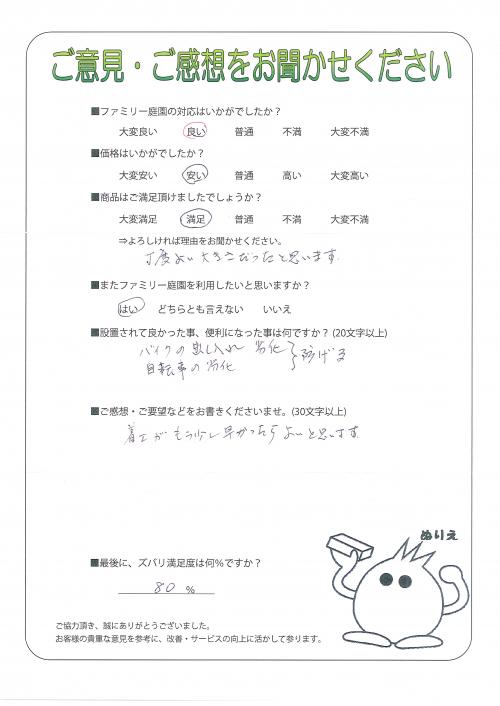 ご意見・ご感想をお聞かせください
■ファミリー庭園の対応はいかがでしたか？
大変良い 良い 普通 不満 大変不満
■価格はいかがでしたか？
大変安い 安い 普通 高い 大変高い
■商品はご満足頂けましたでしょうか？
大変満足 満足 普通 不満 大変不満
⇒よろしければ理由をお聞かせください。
丁度よい大きさだったと思います。
■またファミリー庭園を利用したいと思いますか？
はい どちらとも言えない いいえ
■設置されて良かった事、便利になった事は何ですか？(20文字以上)
バイクの出し入れ 劣化
自転車の劣化 } 防げる
■ご感想・ご要望などをお書きくださいませ。(30文字以上)
着工がもう少し早かったらよいと思います。
■最後に、ズバリ満足度は何％ですか？
80 ％
ぬりえ
ご協力頂き、誠にありがとうございました。
お客様の貴重な意見を参考に、改善・サービスの向上に活かして参ります。